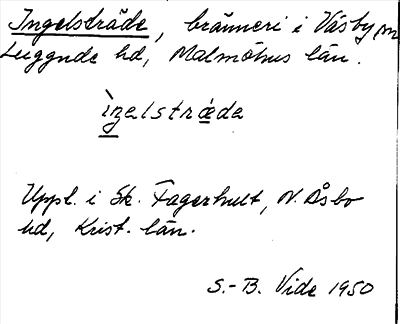 Ingelsträde, bränneri i Väsby, sn
Luggude hd, Malmöhus län.
ìŋalstrǽda
Uppl. i Sk. Fagerhult, N. Åsbo
hd, Krist. län.
S.-B. Vide 1950